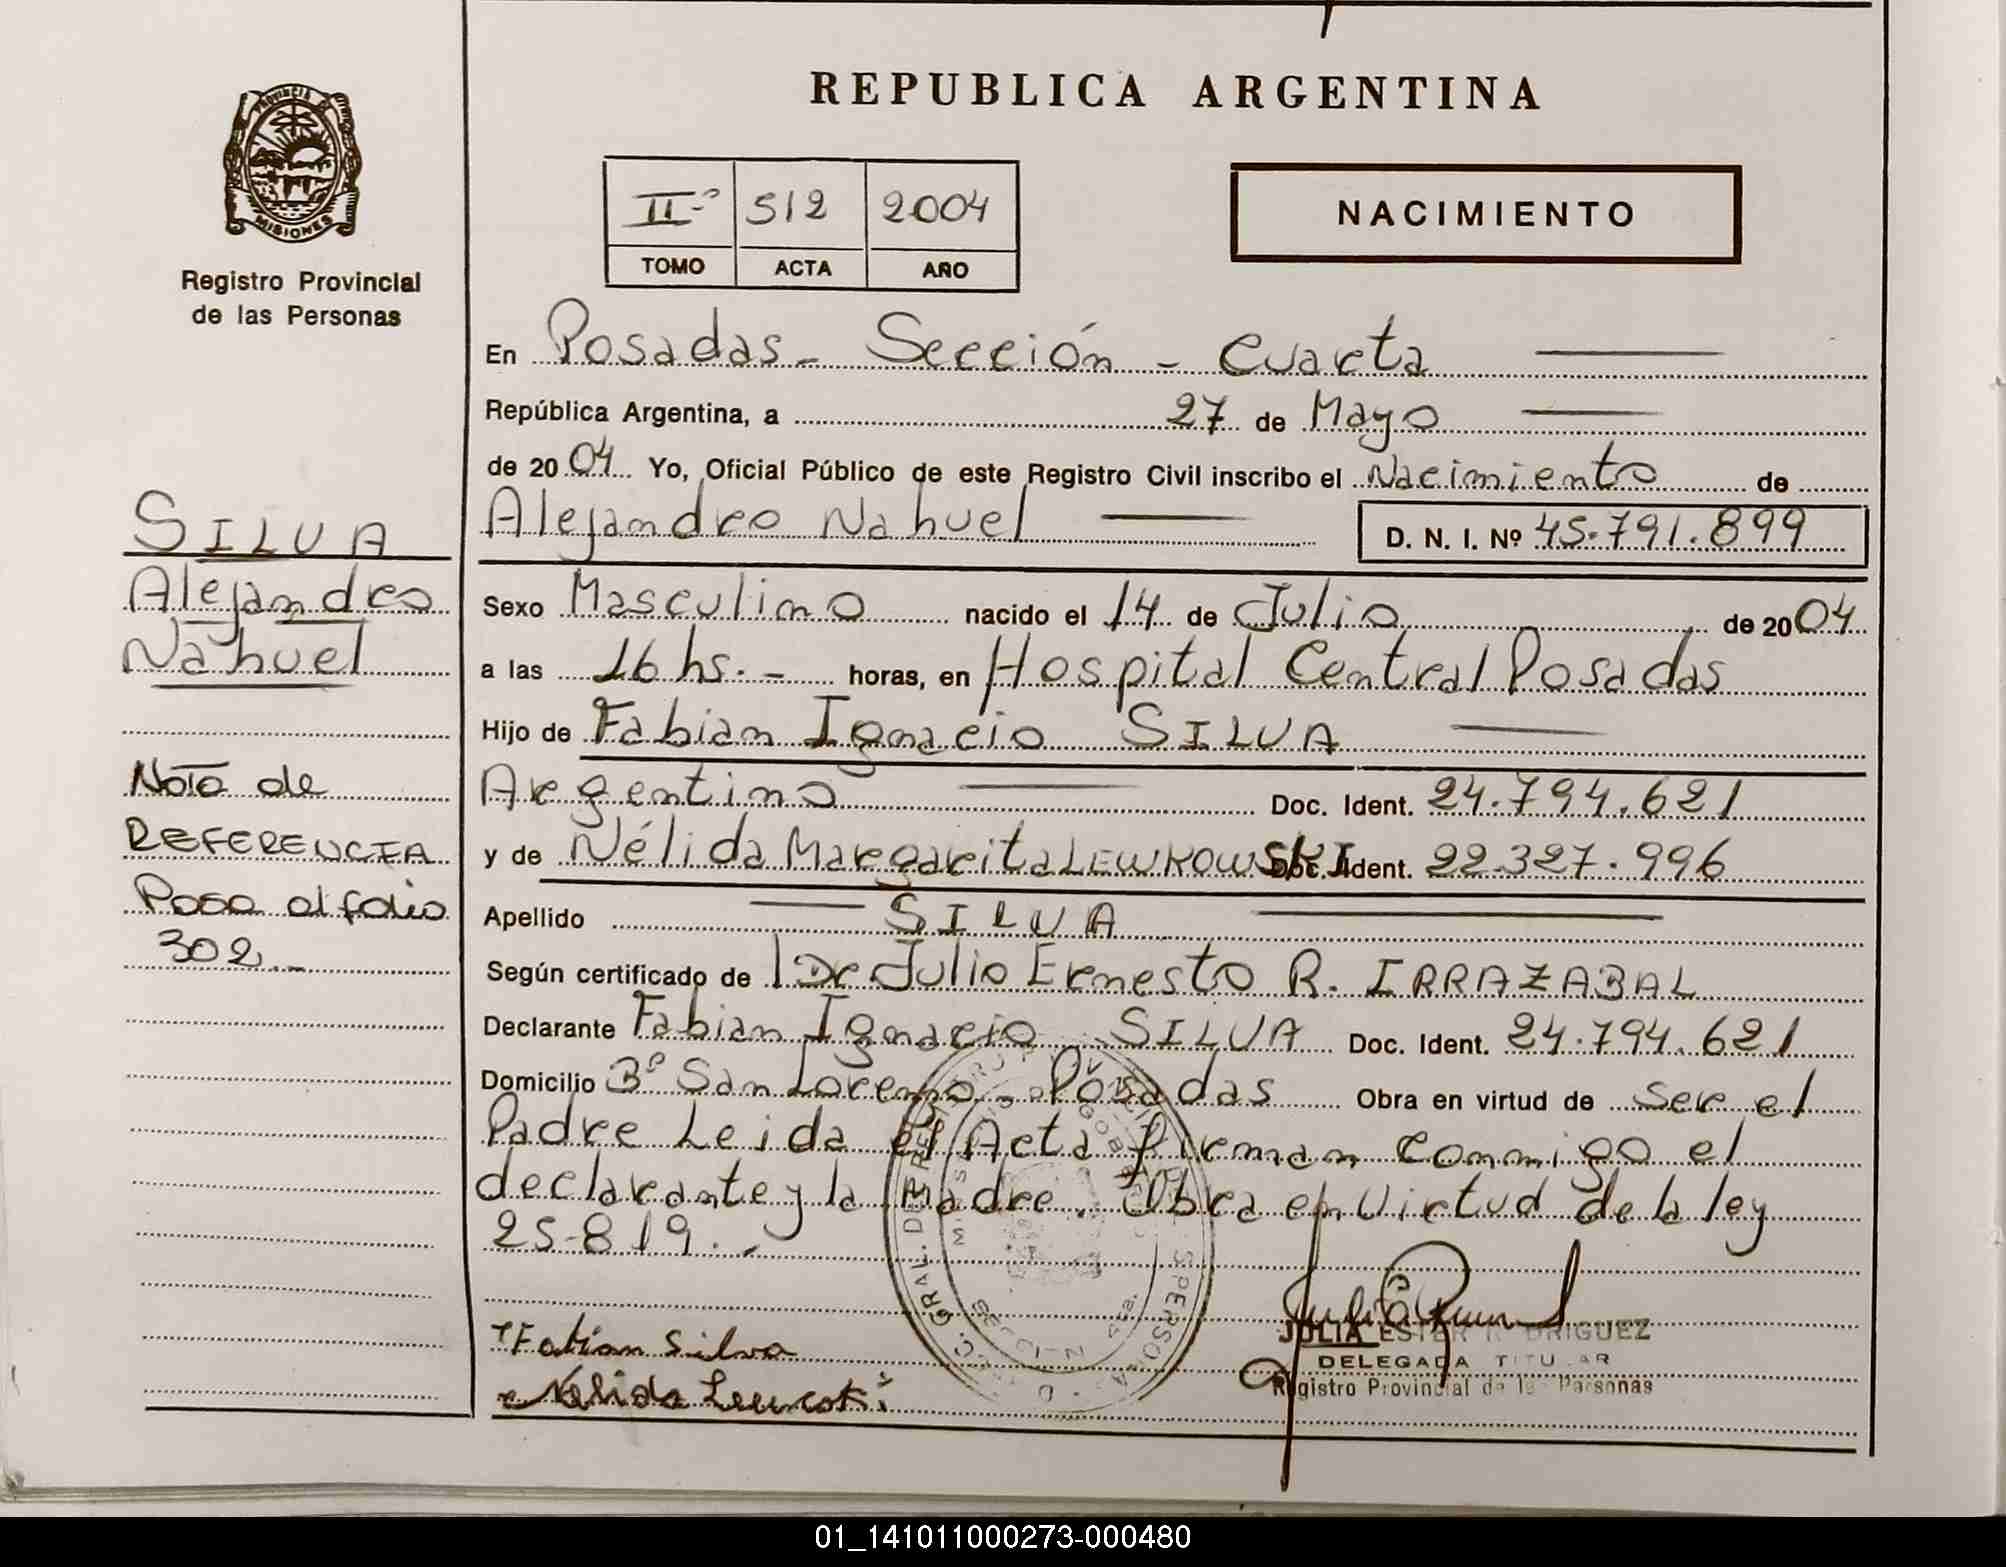 REPUBLICA ARGENTINA
PROVINCIA DE
MISIONES
Registro Provincial
de las Personas
II-º 512 2004
TOMO ACTA AÑO
NACIMIENTO
En Posadas - Sección - Cuarta
República Argentina, a 27 de Mayo
de 2004 Yo, Oficial Público de este Registro Civil inscribo el Nacimiento de
Alejandro Nahuel D. N. I. Nº 45.791.899
Sexo Masculino nacido el 14 de Julio de 2004
a las 16 hs. - horas, en Hospital Central Posadas
Hijo de Fabian Ignacio SILVA
Argentino Doc. Ident. 24.794.621
y de Nélida Margarita LEWKOWSKI Doc. Ident. 22.327.996
Apellido SILVA
Según certificado de Dr Julio Ernesto R. IRRAZABAL
Declarante Fabian Ignacio SILVA Doc. Ident. 24.794.621
Domicilio Bº San Lorenzo - Posadas Obra en virtud de ser el
Padre Leida el Acta firman conmigo el
declarante y la Madre. Obra en Virtud de la ley
25-819.-
SILVA
Alejandro
Nahuel
Nota de
REFERENCIA
Pasa al folio
302.-
Fabian Silva
Nelida
JULIA ESTER RODRIGUEZ
DELEGADA TITULAR
Registro Provincial de las Personas
01_141011000273-000480